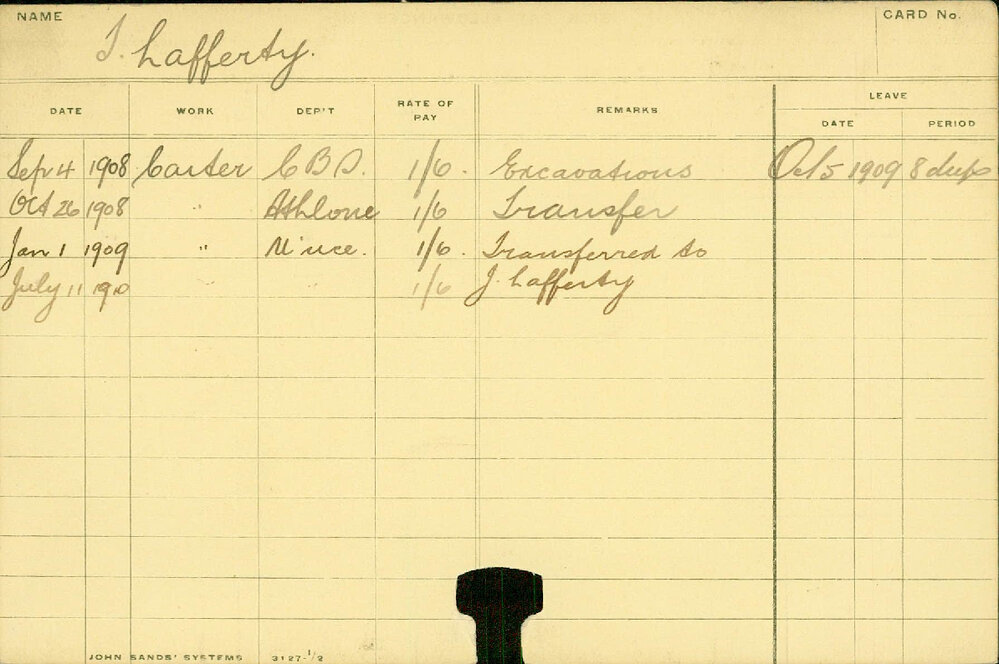 NAME
CARD No.
J. Lafferty.
LEAVE
DATE WORK DEP'T RATE OF PAY REMARKS DATE PERIOD
Sept 4 1908 Carter C B D. 1/6. Excavations Oct 5 1909 8 days
Oct 26 1908 " Athlone 1/6 Transfer
Jan 1 1909 " 1/6. Transferred to
July 11 1910 1/6 J. Lafferty
JOHN SANDS' SYSTEMS 3127-1/2